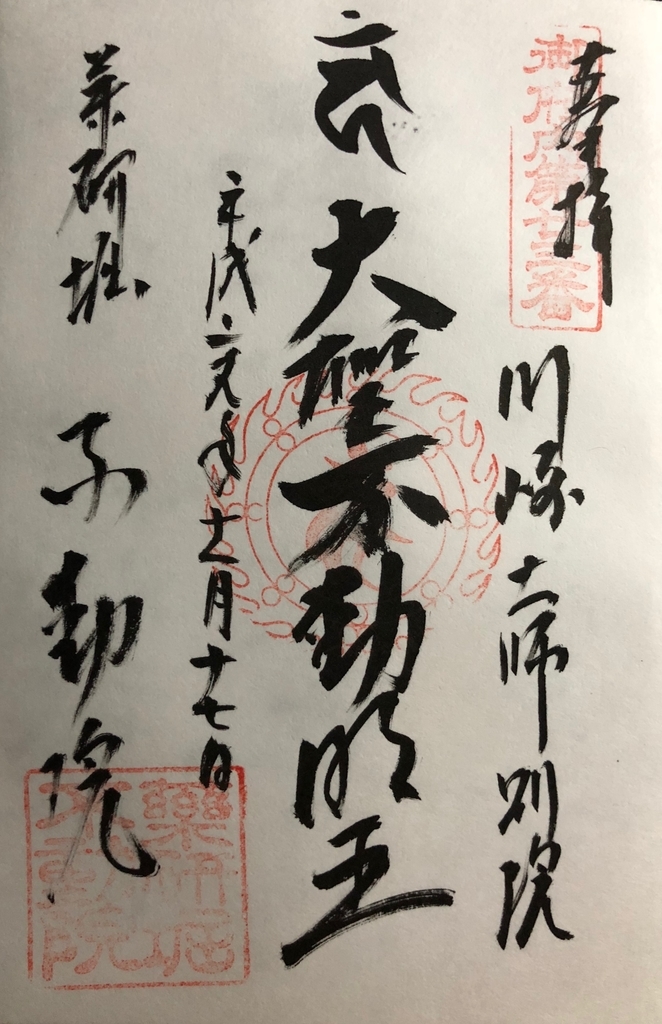 奉拝
御府内第廿三番
川崎大師別院
大聖不動明王
平成二九年十二月十七日
薬研堀 不動院
藥研堀
不動院